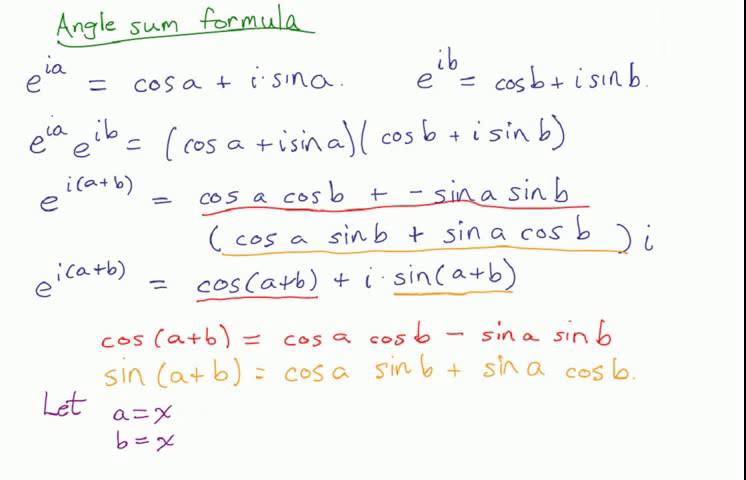 Angle sum formula
e^{ia} = cos a + i·sin a. e^{ib} = cos b + i sin b.
e^{ia} e^{ib} = (cos a + i sin a)(cos b + i sin b)
e^{i(a+b)} = cos a cos b + - sin a sin b
(cos a sin b + sin a cos b) i
e^{i(a+b)} = cos(a+b) + i· sin(a+b)
cos (a+b) = cos a cos b - sin a sin b
sin (a+b) = cos a sin b + sin a cos b.
Let a = x
b = x